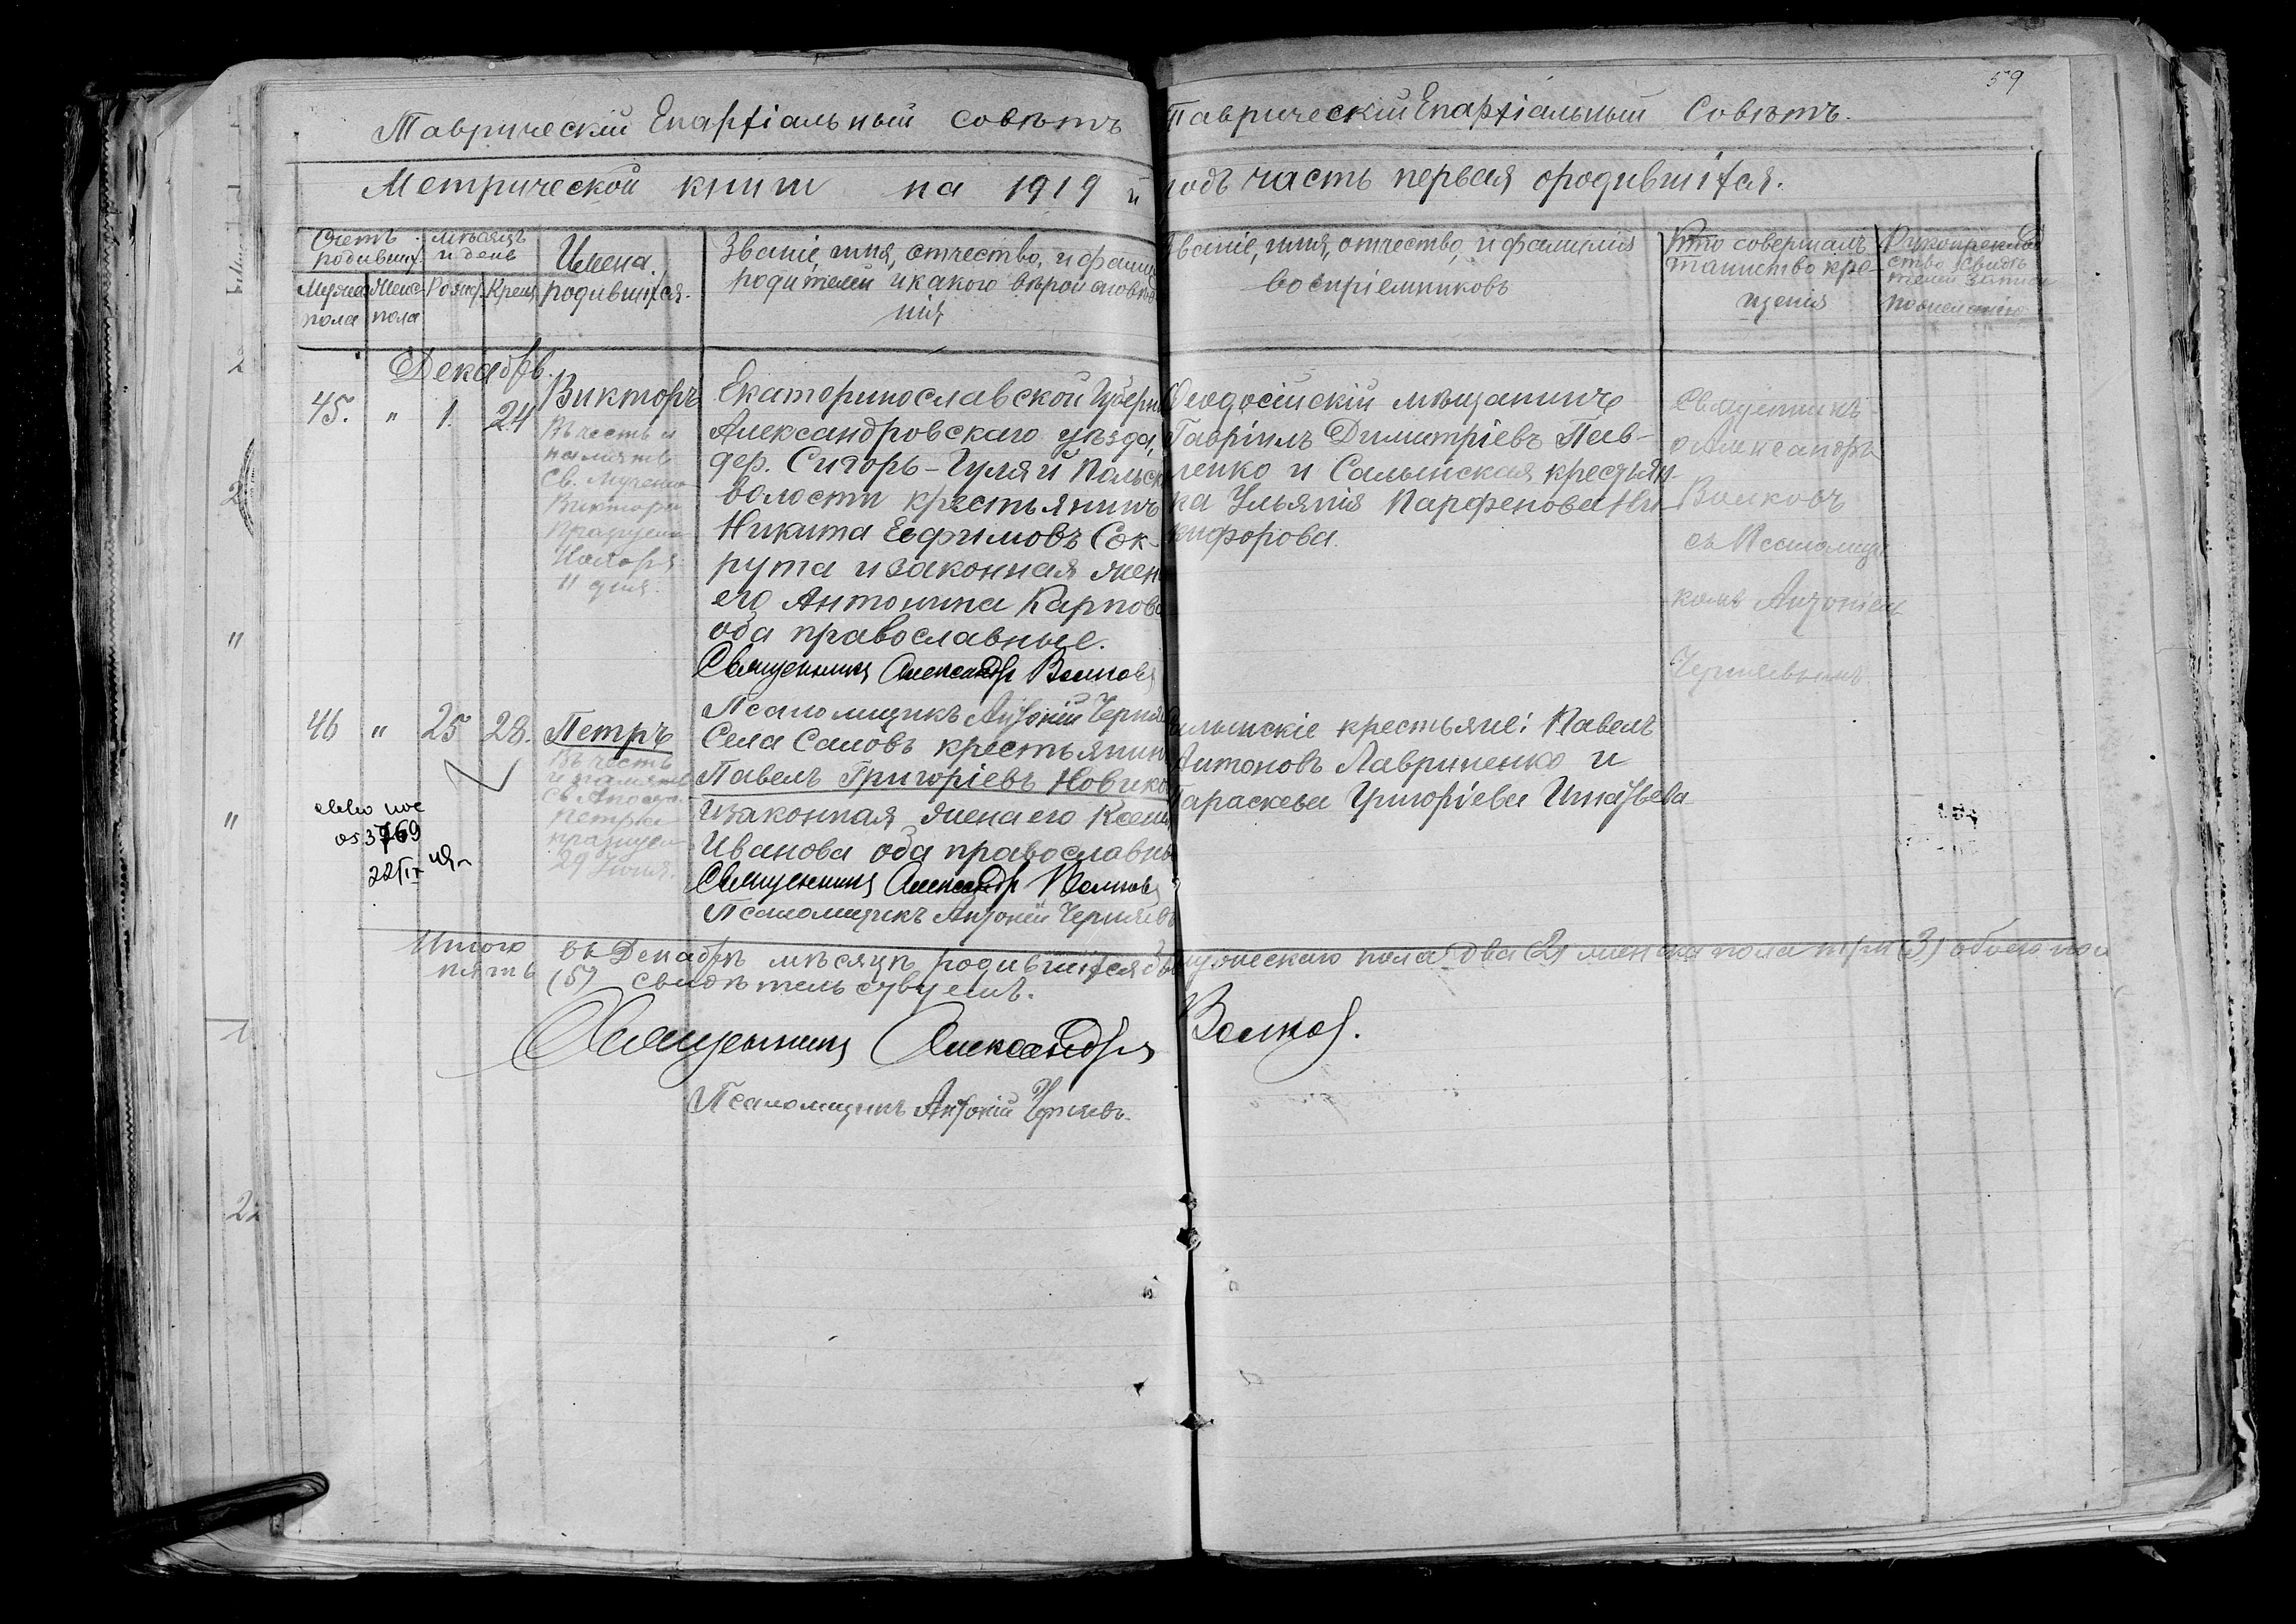 59
Таврическій Епархіальный совѣтъ Таврическій Епархіальный Совѣтъ.
Метрической книги на 1919 й годъ часть первая о родившихся.
Счетъ родивших.
мѣсяцъ и день
Имена родившихся.
Мужеска пола
Женс. пола
Рожд.
Крещ.
Званіе, имя, отчество, и фамил
родителей и какого вѣроисповѣда
нія
Званіе, имя, отчество, и фамилія
воспріемниковъ
Кто совершалъ
таинство кре-
щенія
Рукоприклад
ство свидѣ
телей записи
по желанію
Декабрь.
45. " 1. 24
Викторъ
Въ честь и
память
Св. Мученик
Виктора
празднуем
Ноября
11 дня.
Екатеринославской Губерн
Александровскаго уѣзда,
дер. Сигорь-Гуляй Польск
волости крестьянинъ
Никита Евфимовъ Сок-
рута и законная жен
его Антонина Карпова
оба православные.
Священникъ Александръ Волковъ
Псаломщикъ Антоній Черняе
Феодосійскій мѣщанинъ
Гавріилъ Димитріевъ Пав-
ленко и Салынская крестьян-
ка Ульянія Парфенова Ни-
кифорова.
Священникъ
Александръ
Волковъ
съ Псаломщи
комъ Антоніем
Черняевымъ
46 " 25 28.
Петръ
Въ честь
и память
св. Апост.
Петра
празднуем
29 Іюня.
Села Саловъ крестьянин
Павелъ Григоріевъ Новико
и законная жена его Ксені
Иванова оба православны
Священникъ Александръ Волковъ
Псаломщикъ Антоній Черняевъ
лынскіе крестьяне: Павелъ
Антоновъ Лавриненко и
Параскева Григоріева Игнатьева
3769
22/IX
Итого въ Декабрѣ мѣсяцѣ родившихся было мужескаго пола два (2) женска пола три (3) обоего пол
пять (5) свидѣтельствуемъ.
Священникъ Александръ Волковъ.
Псаломщикъ Антоній Черняевъ.